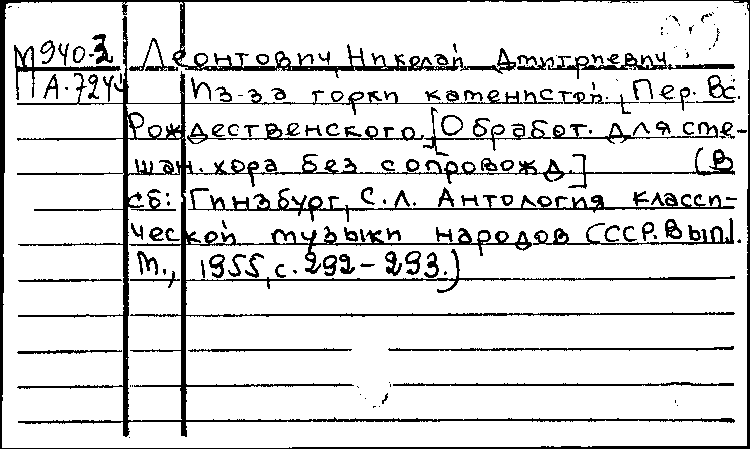 М940-3 Леонтович, Николай Дмитриевич.
А-724 Из-за горки каменистой. [Пер. Вс.
Рождественского.] [Обработ. для сме-
шан. хора без сопровожд.] (В
сб: Гинзбург, С.Л. Антология класси-
ческой музыки народов СССР. Вып. I.
М., 1955, с. 292-293.)